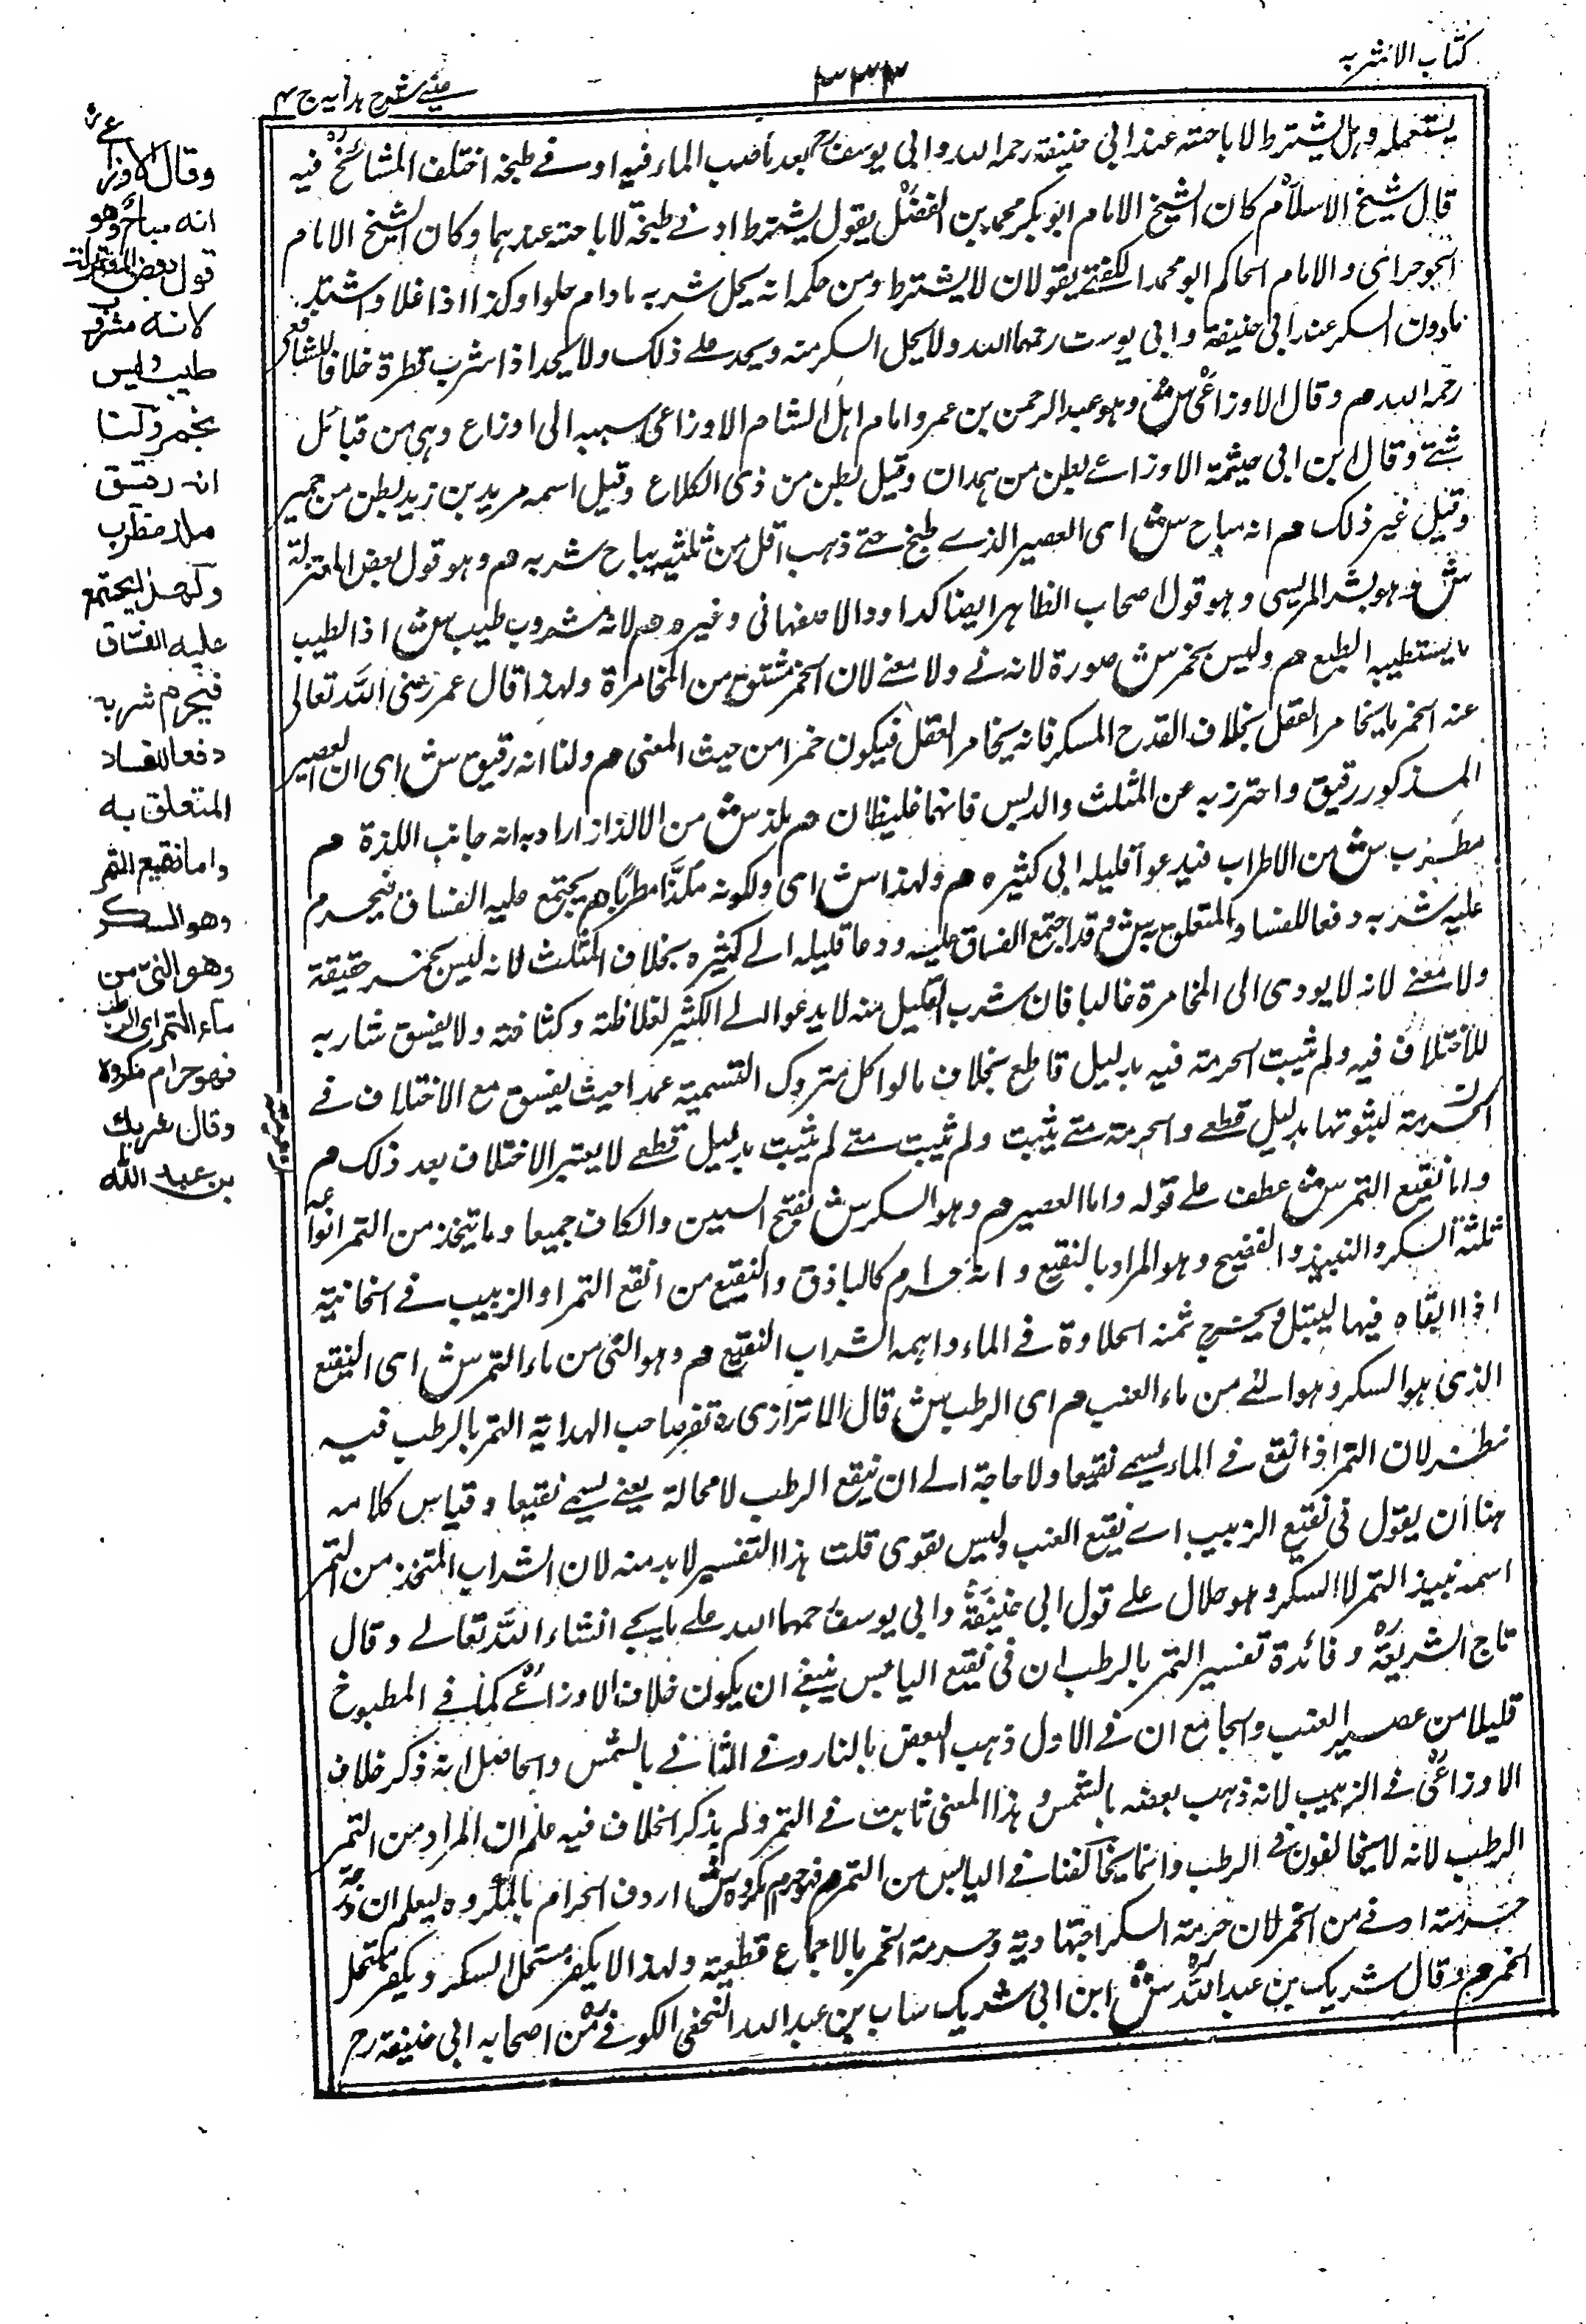 كتاب الاشربه
٣٣٣
عيني شرح هدايه ج ٤
يستعمله وهل يشترط لاباحته عند ابي حنيفة رحمه الله وابي يوسف رح بعد ما صب الماء فيه ادنے طبخه اختلف المشائخ فيه
قال شيخ الاسلام كان الشيخ الامام ابو بكر محمد بن الفضل يقول يشترط ادنے طبخة لاباحته عندهما وكان الشيخ الامام
والامام الحاكم ابو محمد الكفينے يقولان لا يشترط ومن حكمه انه يحل شربه ما دام حلوا وكذا اذا غلا واشتد
ما دون السكر عند ابي حنيفة وابي يوسف رحمهما الله ولا يحل السكر منه ويحد علے ذلك ولا يحد اذا شرب قطرة خلافا للشافعي
رحمه الله هم وقال الاوزاعي ش وهو عبد الرحمن بن عمرو امام اهل الشام الاوزاعي نسبه الى اوزاع وهي من قبائل
شتے وقال ابن ابي خيثمة الاوزاعے بطن من همدان وقيل بطن من ذي الكلاع وقيل اسمه مرثد بن زيد بطن من حمير
وقيل غير ذلك هم انه مباح ش اى العصير الذے طبخ حتے ذهب اقل من ثلثيه يباح شربه هم وهو قول بعض المعتزلة
ش وهو بشر المريسي وهو قول اصحاب الظاهر ايضا كداود الاصفهاني وغيره هم لانه مشروب طيب ش اذ الطيب
ما يستطيبه الطبع هم وليس بخمر ش صورة لانه نے ولا معنے لان الخمر مشتق من المخامرة ولهذا قال عمر رضى الله تعالى
عنه الخمر ما يخامر العقل بخلاف القدح المسكر فانه يخامر العقل فيكون خمرا من حيث المعنى هم ولنا انه رقيق ش اى ان العصير
المذكور رقيق واحترز به عن المثلث والدبس فانهما غليظان هم ملذ ش من الالذاذ اراد به انه جانب اللذة هم
مطرب ش من الاطراب فيدعو قليله الى كثيره هم ولهذا ش اى ولكونه ملذا مطربا هم يجتمع عليه الفساق فيحرم
عليه شربه دفعا للفساد المتعلق به ش وقد اجتمع الفساق عليه ودعا قليله الے كثيره بخلاف المثلث لانه ليس بخمر حقيقة
ولا معنے لانه لا يودى الى المخامرة غالبا فان شرب القليل منه لا يدعو الے الكثير لغلاظته وكثافته ولا يفسق شاربه
للاختلاف فيه ولم تثبت الحرمة فيه بدليل قاطع بخلاف ما لو اكل متروك التسمية عمدا حيث يفسق مع الاختلاف فے
الحرمة لثبوتها بدليل قطعے والحرمة متے ثبتت ولم تثبت متے لم يثبت بدليل قطعے لا يعتبر الاختلاف بعد ذلك هم
واما نقيع التمر ش عطف علے قوله واما العصير هم وهو السكر ش بفتح السين والكاف جميعا وما يتخذ من التمر انواع
ثلثة السكر والنبيذ والفضيخ وهو المراد بالنقيع وانه حرام كالباذق والنقيع من انقع التمر او الزبيب فے الخانية
اذا القاه فيها ليبتل ويخرج منه الحلاوة فے الماء واسمه الشراب النقيع هم وهو النئ من ماء التمر ش اى النقيع
الذى هو السكر وهو النے من ماء العنب هم اى الرطب ش قال الاترازى ره تفسر صاحب الهداية التمر بالرطب فيه
نظر لان التمر اذا انقع فے الماء يسمے نقيعا ولا حاجة الے ان ينقع الرطب لا محالة يعنے يسمے نقيعا وقياس كلامه
هنا ان يقول فى نقيع الزبيب اے نقيع العنب وليس بقوى قلت هذا التفسير لابد منه لان الشراب المتخذ من التمر
اسمه نبيذ التمر لا السكر وهو حلال علے قول ابي حنيفة وابي يوسف رحمهما الله علے ما يجے انشاء الله تعالے وقال
تاج الشريعة وفائدة تفسير التمر بالرطب ان فى نقيع اليابس ينبغے ان يكون خلاف الاوزاعے كما فے المطبوخ
قليلا من عصير العنب والجامع ان فے الاول ذهب البعض بالنار وفے الثانے بالشمس والحاصل انه ذكر خلاف
الاوزاعى فے الزبيب لانه ذهب بعضه بالشمس وهذا المعنى ثابت فے التمر ولم يذكر الخلاف فيه علم ان المراد من التمر
الرطب لانه لا يخالفون فے الرطب وانما يخالفنا فے اليابس من التمر هم فهو حرام مكروه ش اردف الحرام بالمكروه ليعلم ان
حرمته ادنے من الخمر لان حرمة السكر اجتهادية وحرمة الخمر بالاجماع قطعية ولهذا لا يكفر مستحل السكر ويكفر مستحل
الخمر هم وقال شريك بن عبد الله ش ابن ابي شريك بن عبد الله النخعى الكوفے من اصحابه ابي حنيفة رح
وقال الاوزاعى
انه مباح وهو
قول بعض المعتزلة
لانه مشروب
طيب وليس
بخمر ولنا
انه رقيق
ملذ مطرب
ولهذا يجتمع
عليه الفساق
فيحرم شربه
دفعا للفساد
المتعلق به
واما نقيع التمر
وهو السكر
وهو النئ من
ماء التمر اى الرطب
فهو حرام مكروه
وقال شريك
بن عبد الله